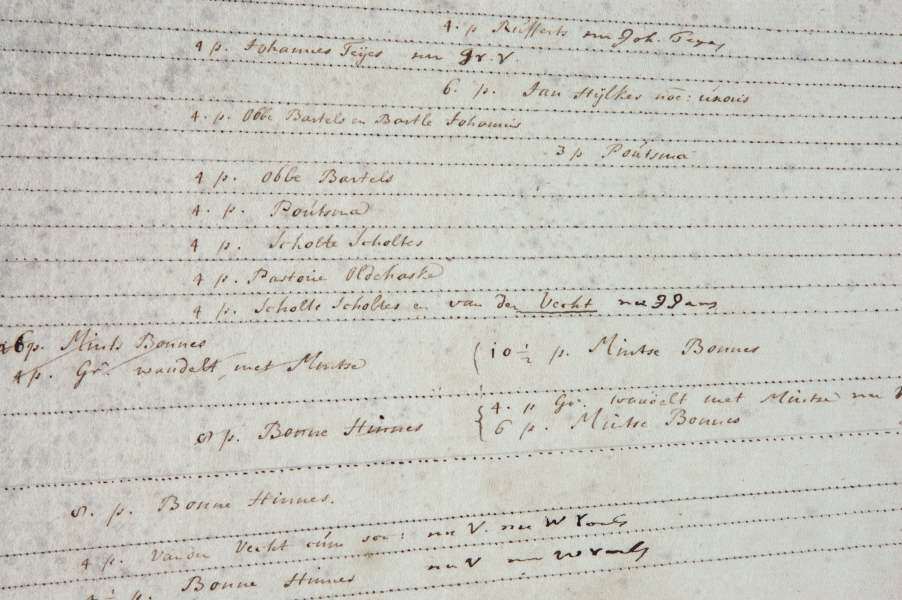 4. p Rufferts nu Joh. Teyes
4 p. Johannes Teijes nu Gr. V
6. p. Jan Hijlkes noe: uxoris
4. p. Obbe Bartels en Bartle Johannis
3 p Poútsma
4 p. Obbe Bartels
4. p. Poútsma
4 p. Scholte Scholtes
4 p. Pastorie Oldehaske
4 p. Scholte Scholtes en van der Vecht nu J Jans
6 p. Mints Bonnes
(10 1/2 p. Mintse Bonnes
4 p. Gr. wandelt met Mintse
{ 4. " Gr. wandelt met Mintse nu
8 p. Bonne Hinnes
6 p. Mintse Bonnes
8. p. Bonne Hinnes.
4 p. Vander Vecht cúm soc: nu V. nu W
p. Bonne Hinnes nu V nu W